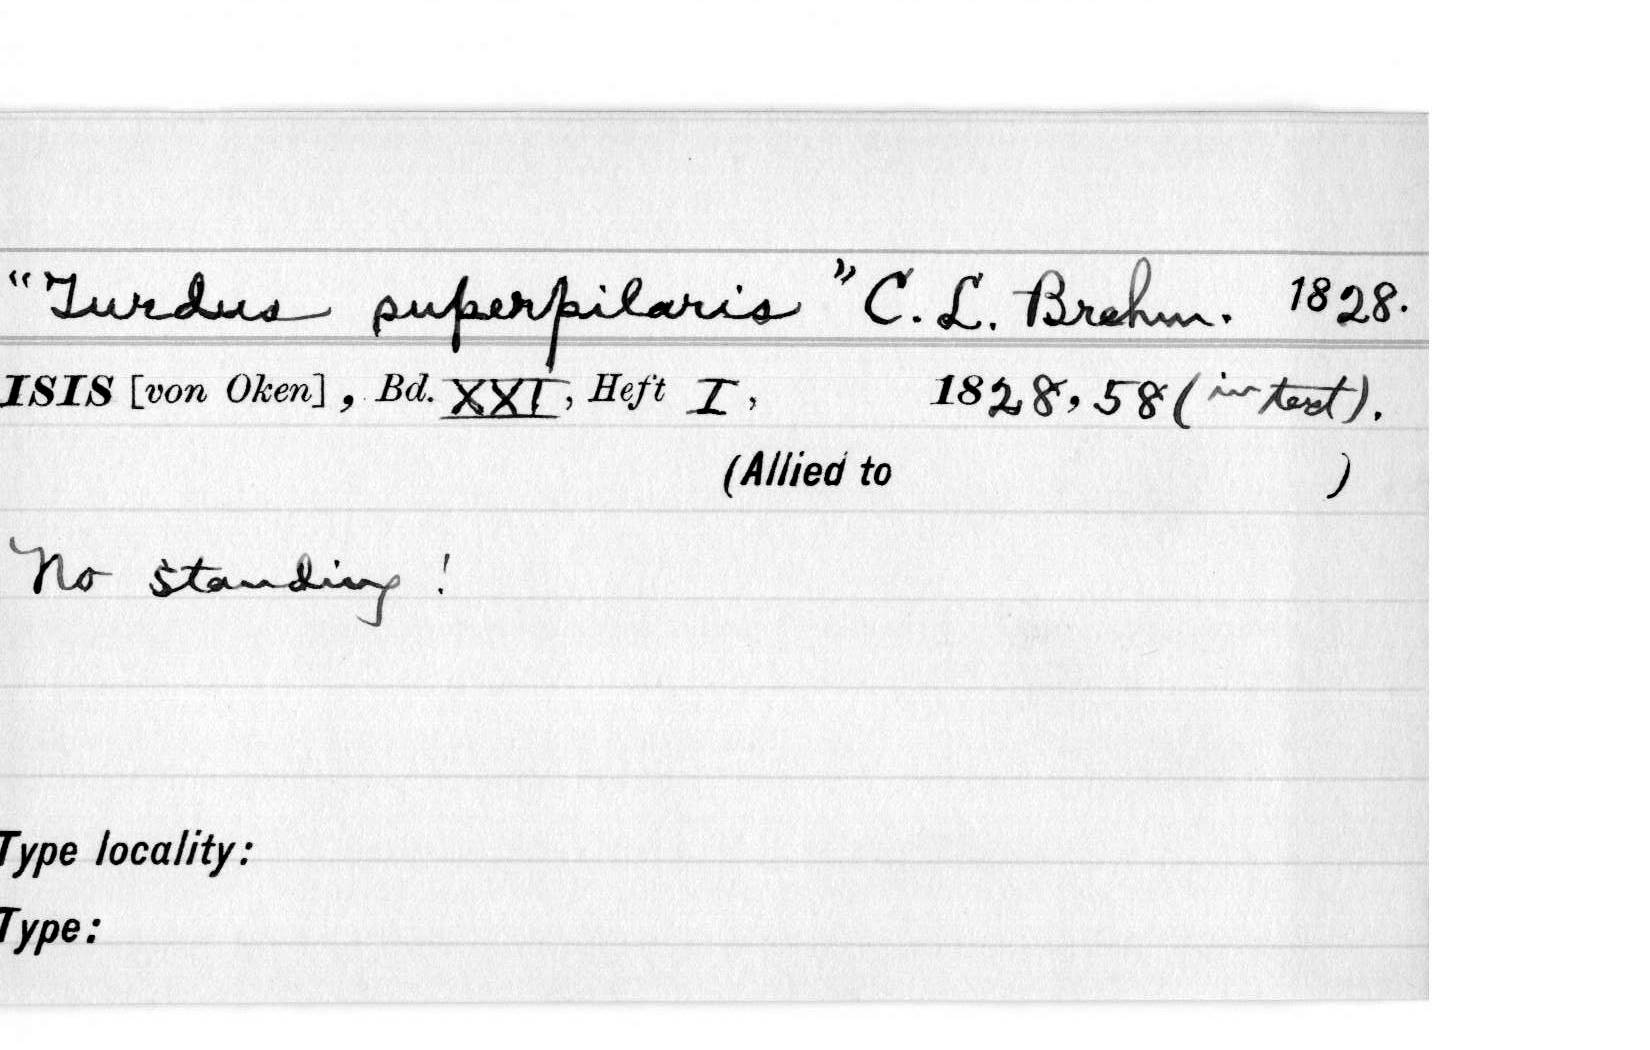 "Turdus superpilaris" C. L. Brehm. 1828.
ISIS [von Oken], Bd. XXI, Heft I, 1828, 58 (in text).
(Allied to )
No standing!
Type locality:
Type: